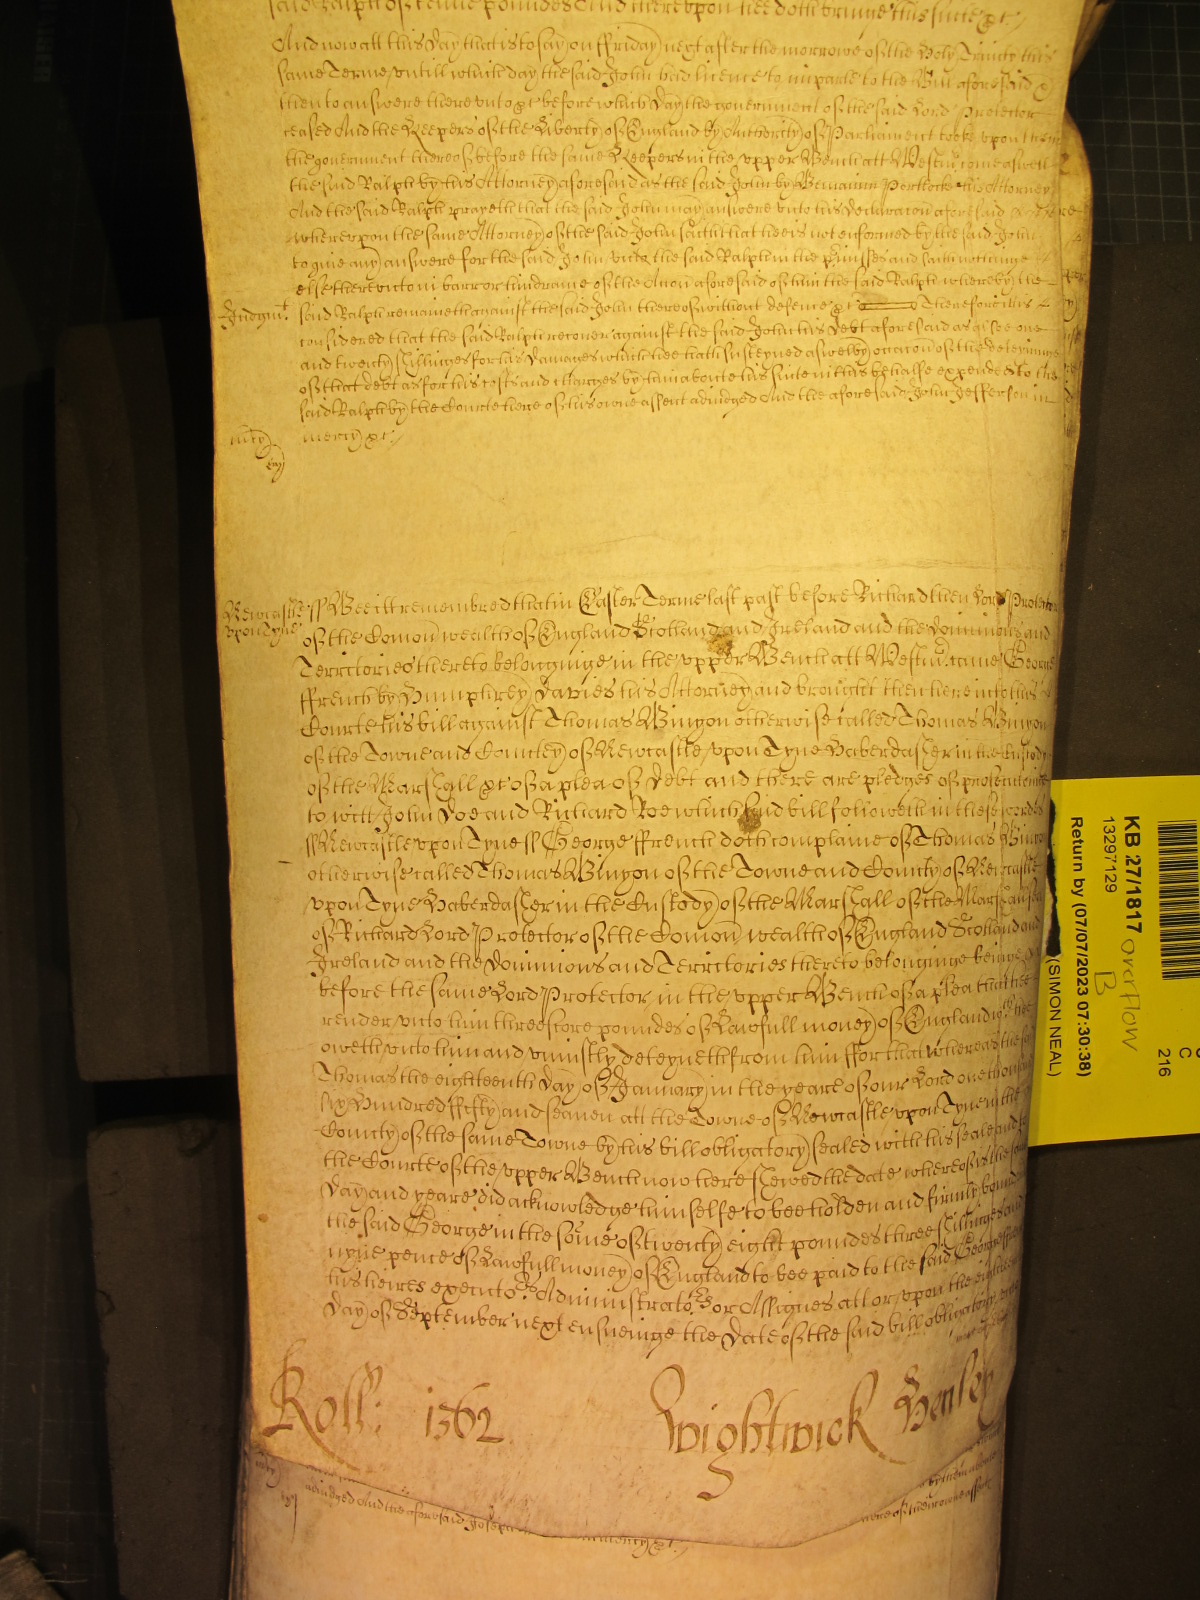 said Ralph of tenne poundes And thereupon hee doth bringe this suite &c /
And now att this day that is to say on ffriday next after the morrowe of the Holy Trinity this
same Terme untill which day the said John had licence to imparle to the Bill aforesaid &
then to answere thereunto &c before which day the government of the said Lord Protector
ceased And the Keepers of the Liberty of England by Authority of Parliament tooke upon them
the government thereof before the same Keepers in the upper Bench att Westm̄ come aswell
the said Ralph by his Attorney aforesaid as the said John by Beniamin Portlocke his Attorney
And the said Ralph prayeth that the said John may answere unto his declaracon aforesaid &c
whereupon the same Attorney of the said John saith that hee is not enformed by the said John
to give any answere for the said John unto the said Ralph in the p̄misses and saith nothinge
else thereunto in barr or hindrance of the Accon aforesaid of him the said Ralph whereby the
Judgmt. said Ralph remaineth against the said John thereof without defence &c Therefore itt is
considered that the said Ralph recover against the said John his debt aforesaid as alsoe one
and twenty shillinges for his damages which hee hath susteyned aswell by occacon of the deteyninge
of that debt as for his costs and charges by him aboute his suite in this behalfe expended to the
said Ralph by the Courte here of his owne assent adiudged And the aforesaid John Jefferson in
mercy &c /
Newcastle upon Tyne ss Bee itt remembred that in Easter Terme last past before Richard then Lord Protector
of the Comon wealth of England Scotland and Ireland and the Dominions and
Territories thereto belonginge in the upper Bench att Westm̄ came George
ffrench by Humphrey Davies his Attorney and brought then here into this
Courte his bill against Thomas Binyon otherwise called Thomas Binyon
of the Towne and Countey of Newcastle upon Tyne Haberdasher in the Custody
of the Marshall &c of a plea of debt and there are pledges of prosecuteinge
to witt John Doe and Richard Roe which said bill followeth in these wordes
ss Newcastle upon Tyne ss George ffrench doth complaine of Thomas Binyon
otherwise called Thomas Binyon of the Towne and County of Newcastle
upon Tyne Haberdasher in the Custody of the Marshall of the Marshalsea
of Richard Lord Protector of the Comon wealth of England Scotland and
Ireland and the Dominions and Territories thereto belonginge beinge
before the same Lord Protector in the upper Bench of a plea that hee
render unto him threescore poundes of Lawfull money of England wch hee
oweth unto him and uniustly deteyneth from him ffor that whereas the said
Thomas the eighteenth day of January in the yeare of our Lord one thousand
six Hundred ffifty and seaven att the Towne of Newcastle upon Tyne in the
County of the same Towne by his bill obligatory sealed with his seale and to
the Courte of the upper Bench now here shewed the date whereof is the same
day and yeare did acknowledge himselfe to bee holden and firmly bound
the said George in the some of twenty eight poundes three shillinges and
nyne pence of Lawfull money of England to bee paid to the said George
his heires executors Administrators or Assignes att or upon the
day of September next ensueinge the date of the said bill obligatory
Roll: 1562 Wightwick Henley
adiudged And the aforesaid Joseph in mercy &c /
KB 27/1817 overflow
13297129 B
Return by (07/07/2023 07:30:38)
(SIMON NEAL)
C
216